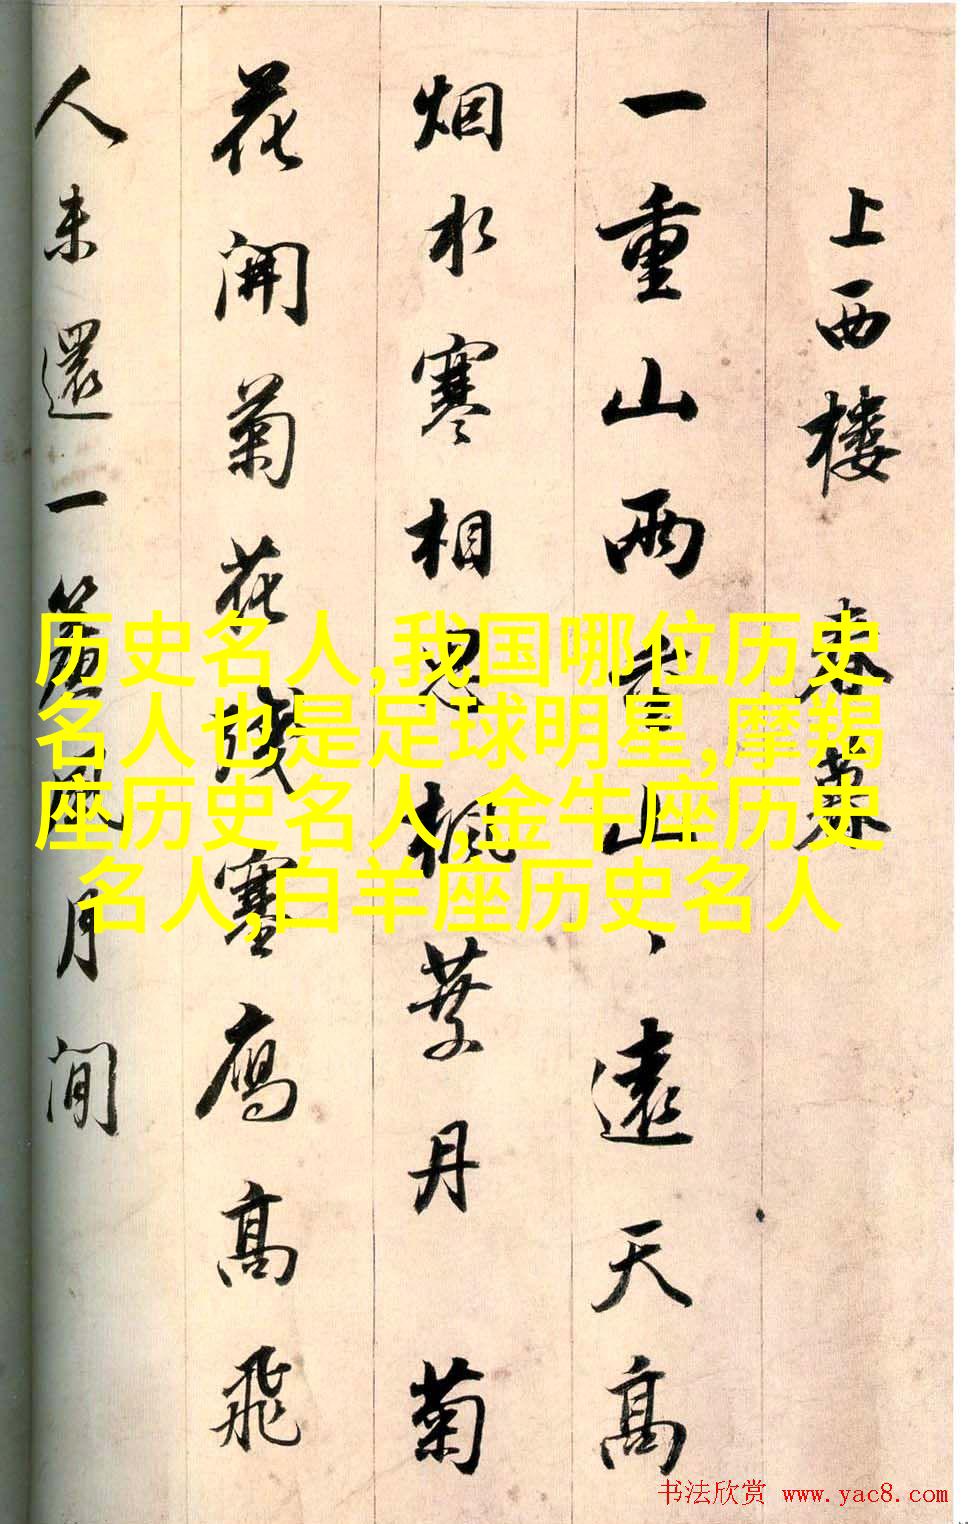 上西楼
一重山兩重山、遠天高
烟水寒相思楓葉丹 菊
花開菊花殘塞鴈高飛
人未還一簾風月閒
历史名人,我国哪位历史
名人也是足球明星,摩羯
座历史名人,金牛座历史
名人,白羊座历史名人
书法欣赏 www.yac8.com